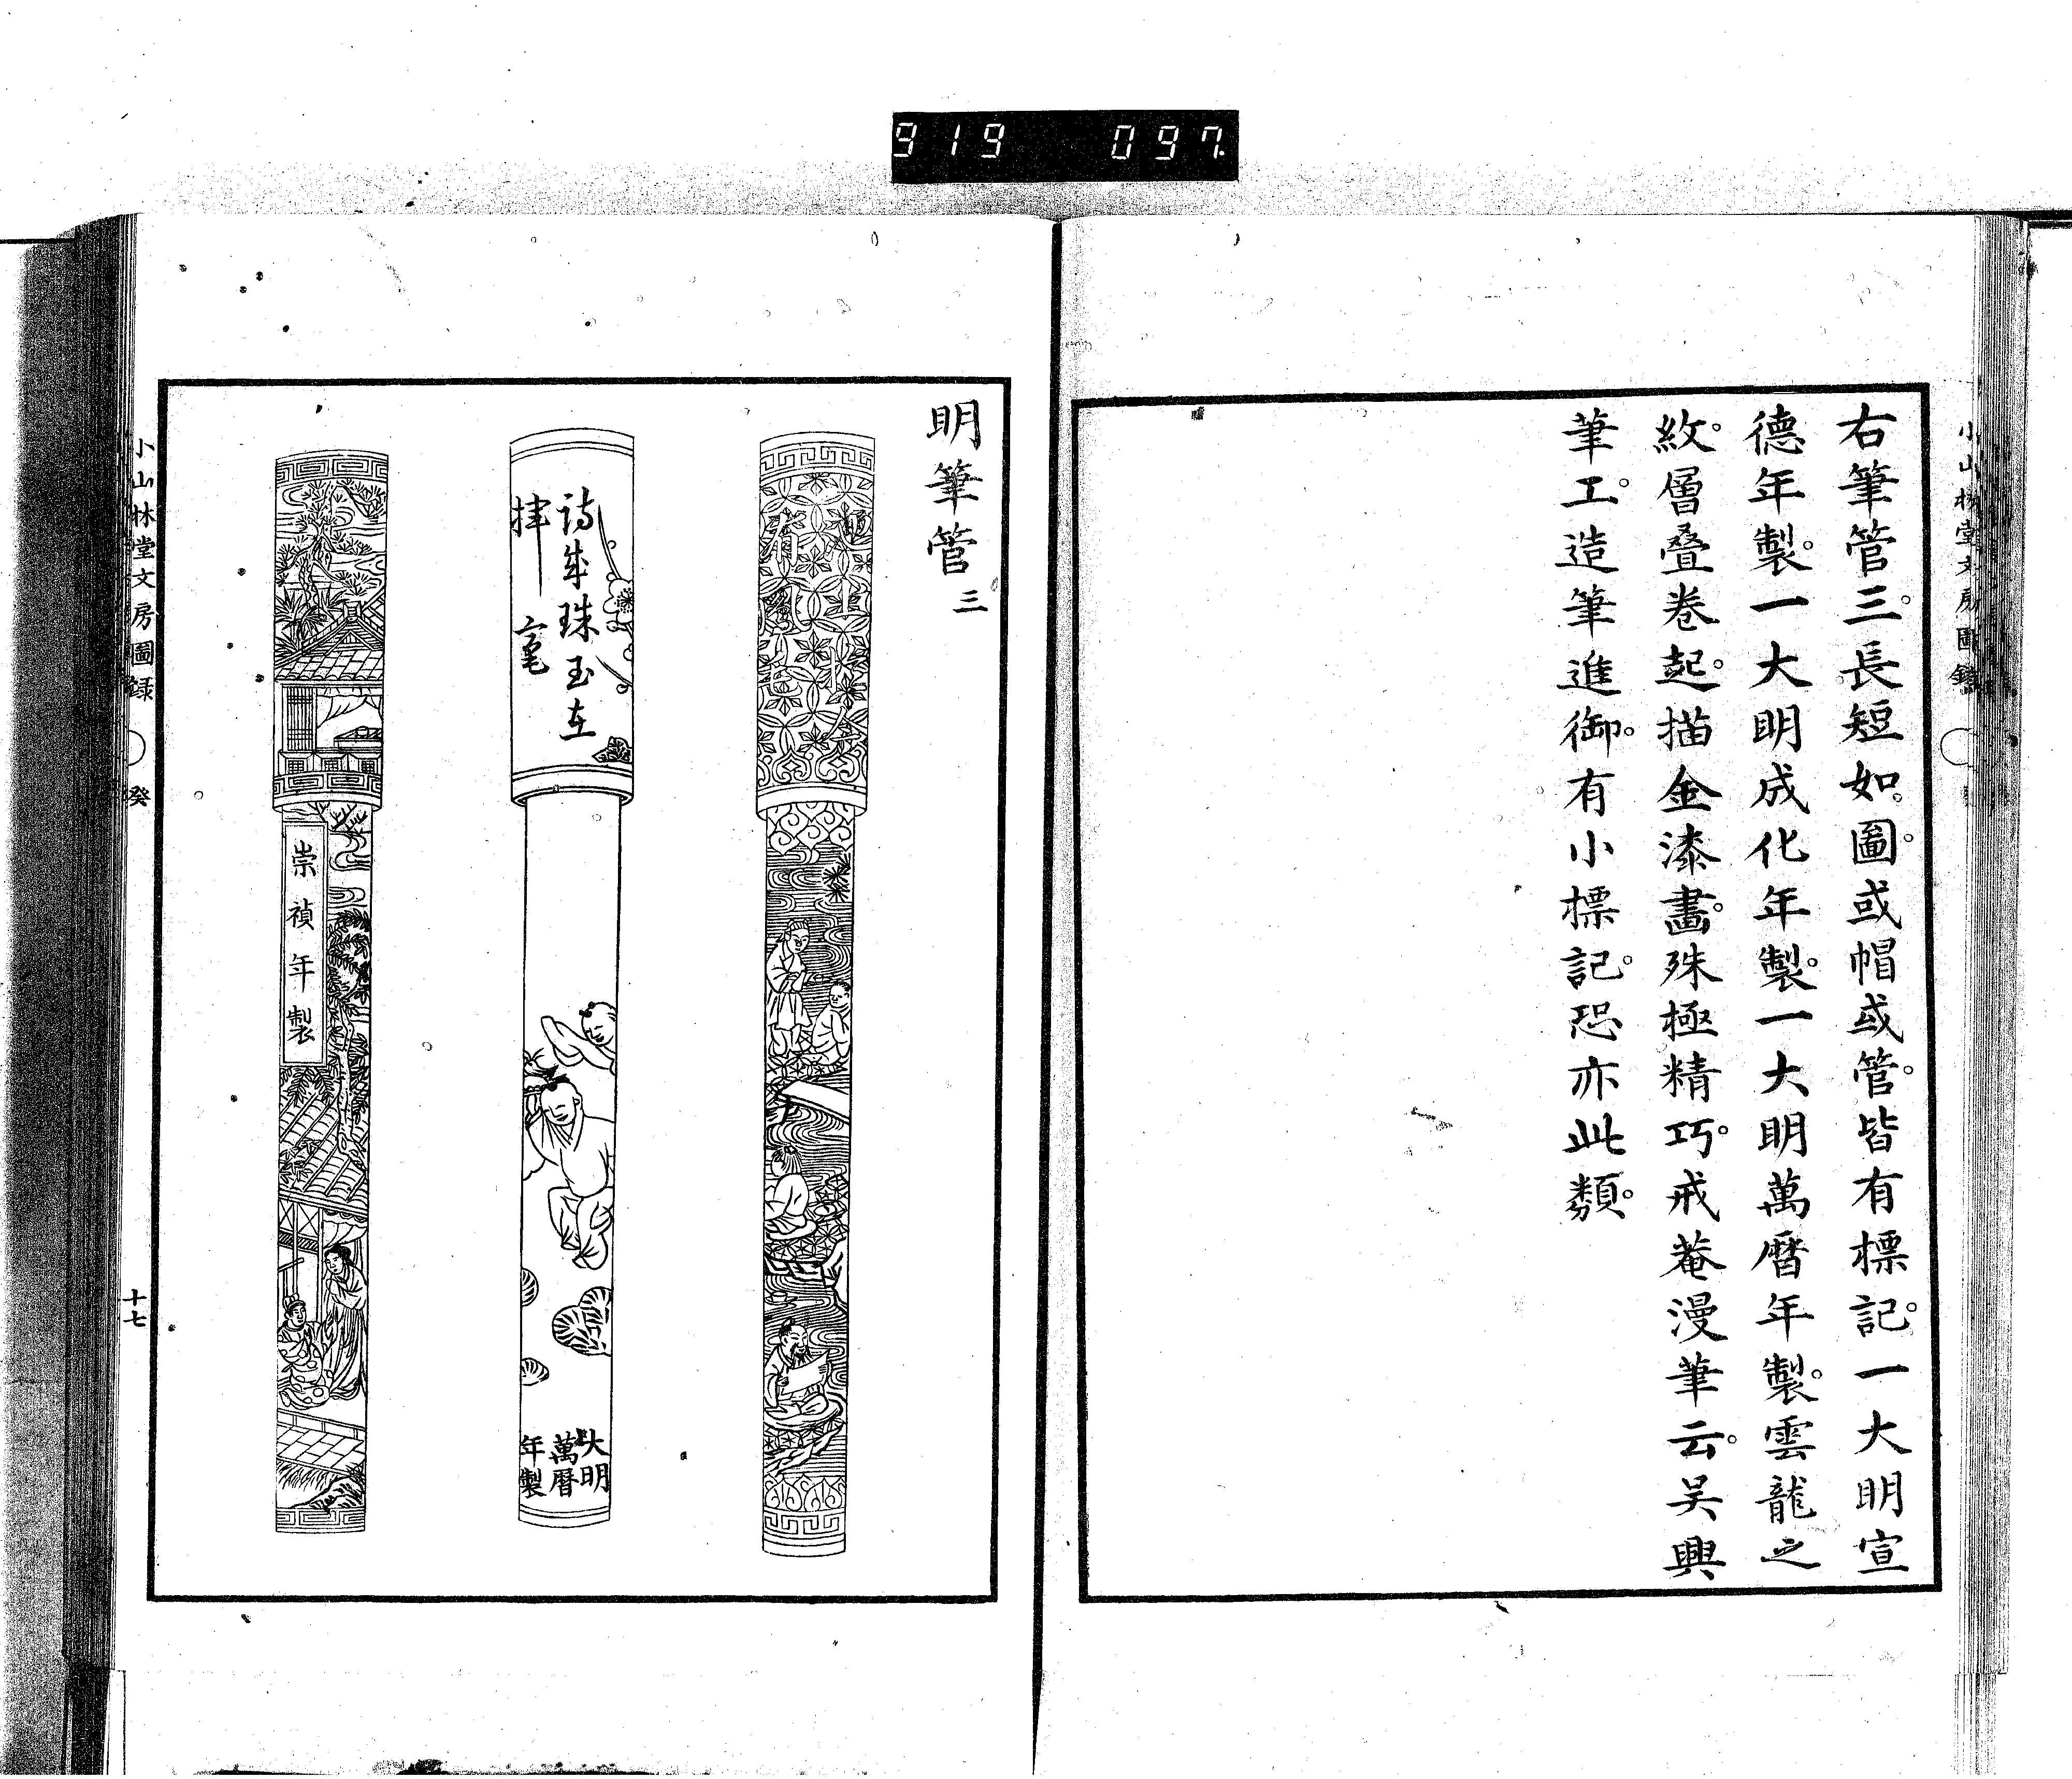 919 097
右筆管三長短如圖或帽或管皆有標記一大明宣
德年製一大明成化年製一大明萬曆年製雲龍之
紋層疊卷起描金漆畫殊極精巧戒菴漫筆云吴興
筆工造筆進御有小標記恐亦此類
明筆管三
詩成珠玉在
揮毫
大明
萬曆
年製
崇禎年製
小山林堂文房圖録 癸 十七
小山林堂文房圖録